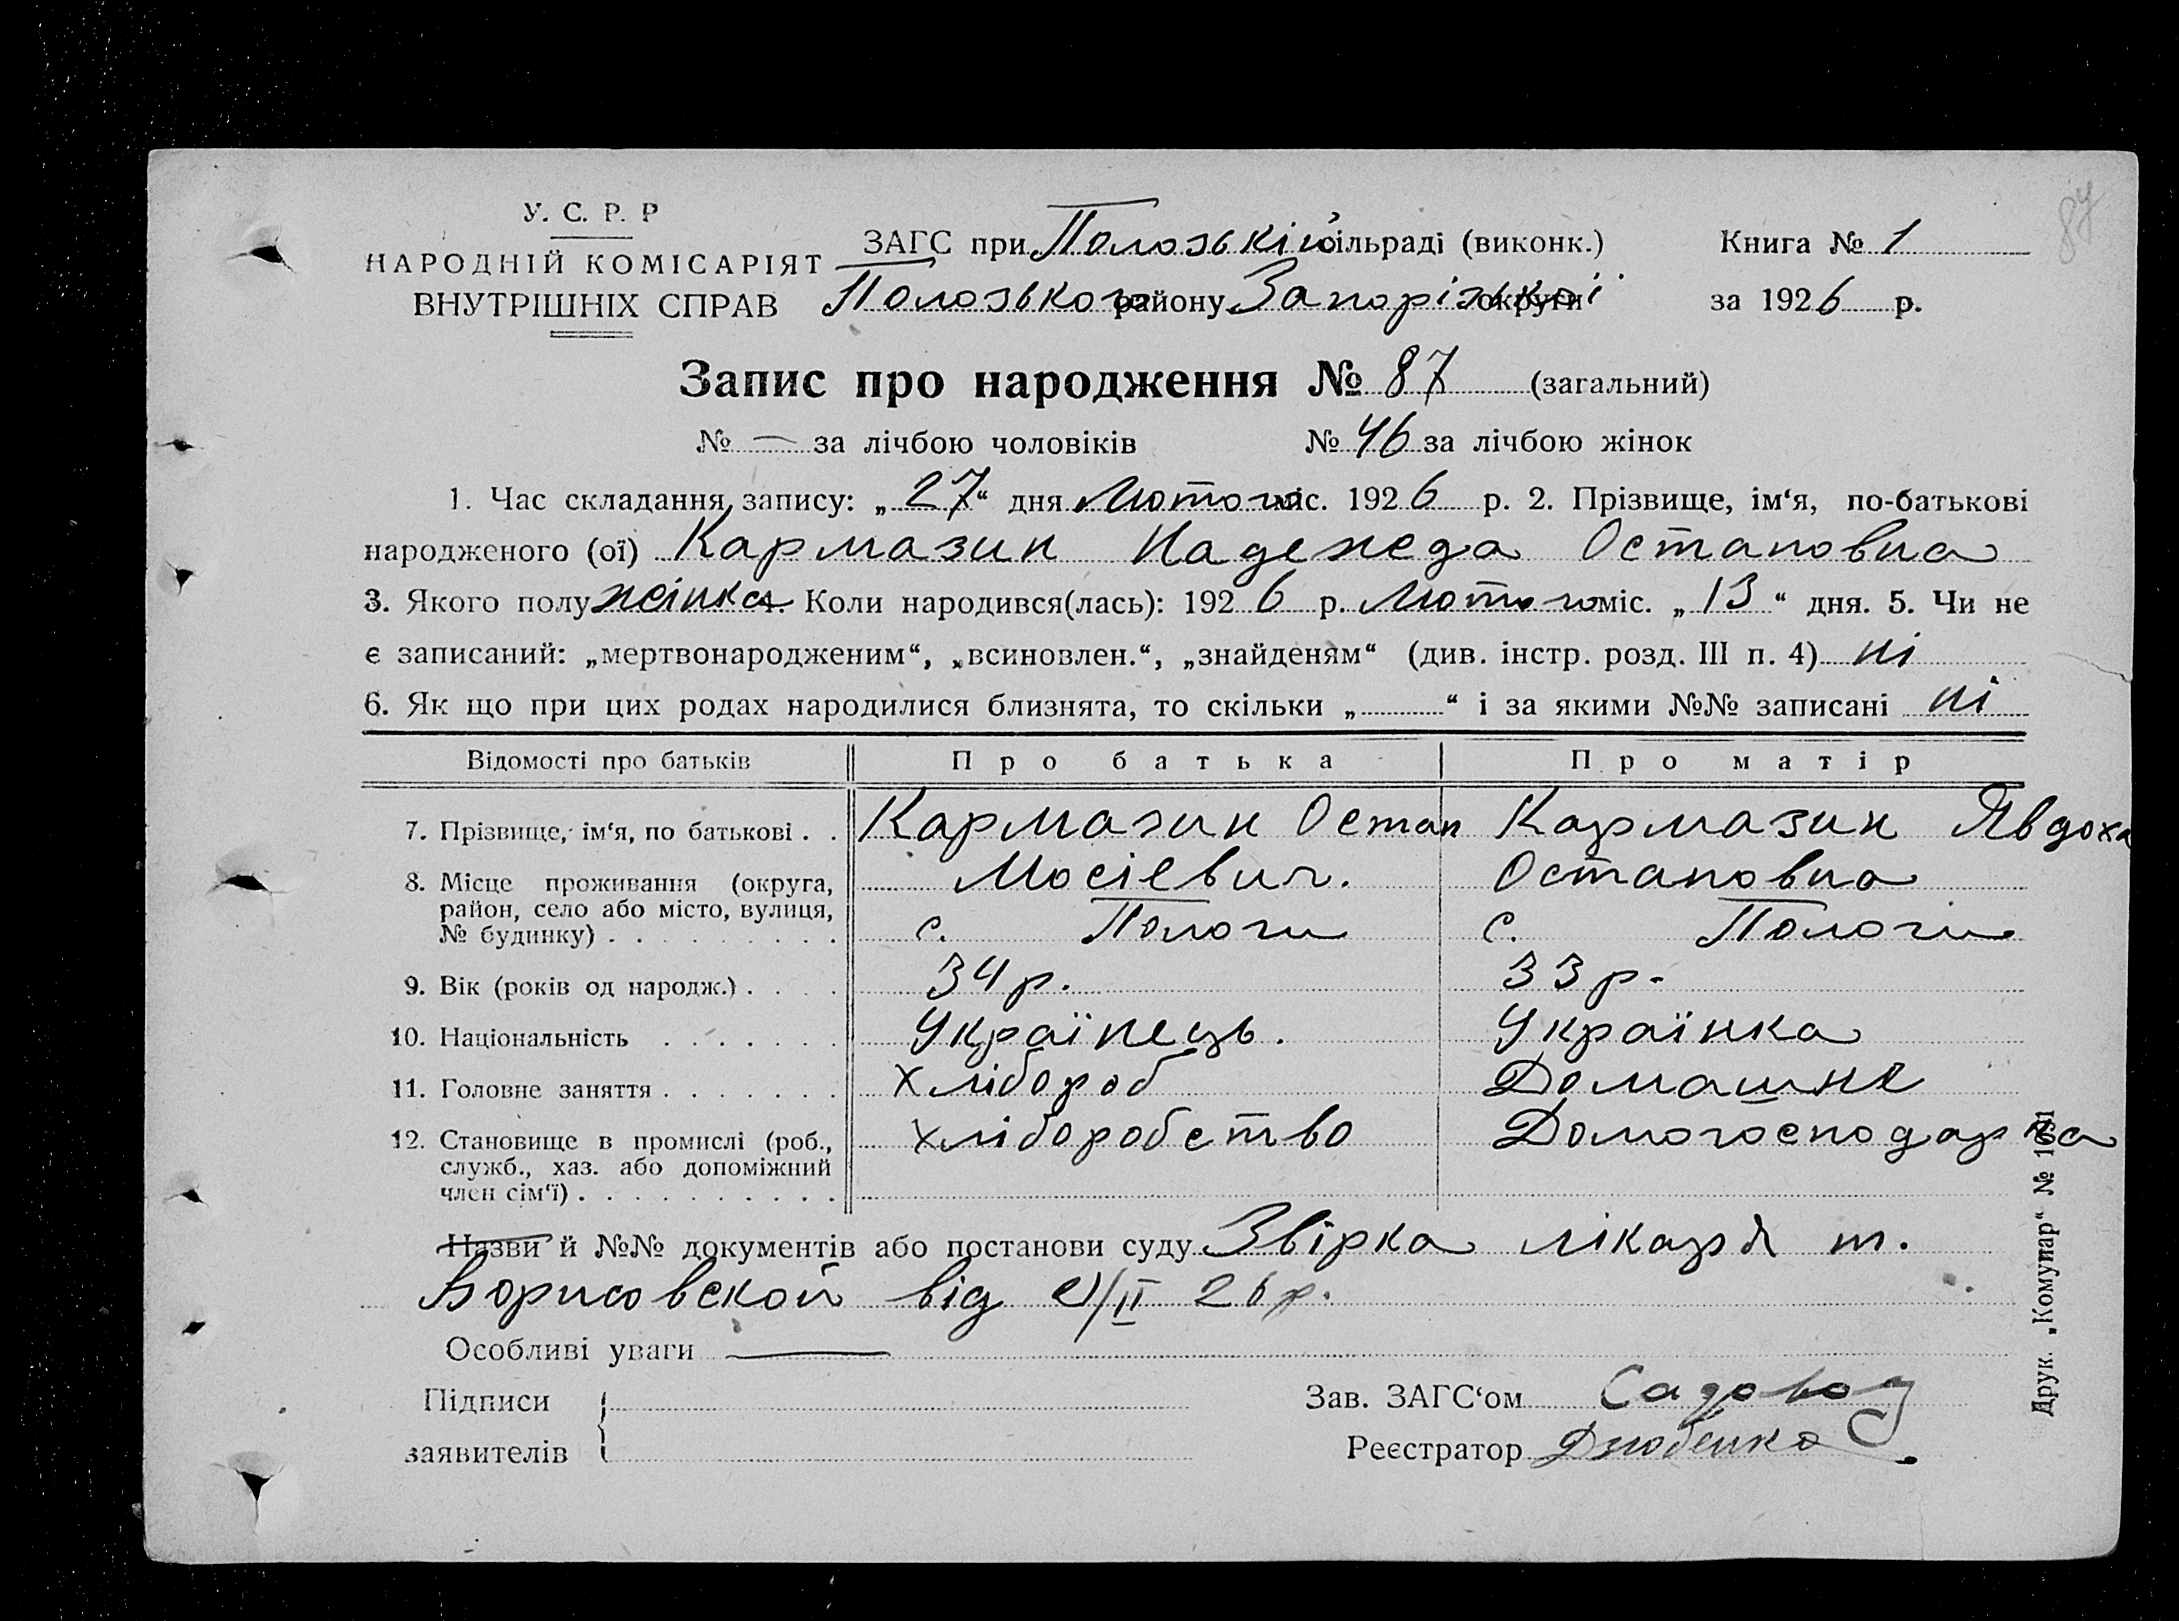 У. С. Р. Р
НАРОДНІЙ КОМІСАРІЯТ
ВНУТРІШНІХ СПРАВ
ЗАГС при Полозькій сільраді (виконк.)
Полозького району Запорізької округи
Книга № 1
за 1926 р.
Запис про народження № 87 (загальний)
№ — за лічбою чоловіків № 46 за лічбою жінок
1. Час складання запису: „27“ дня Лютого міс. 1926 р. 2. Прізвище, ім‘я, по-батькові
народженого (ої) Кармазин Надежда Остаповна
3. Якого полу жінка. Коли народився(лась): 1926 р. Лютого міс. „13“ дня. 5. Чи не
є записаний: „мертвонародженим“, „всиновлен.“, „знайденям“ (див. інстр. розд. III п. 4) ні
6. Як що при цих родах народилися близнята, то скільки „..........“ і за якими №№ записані ні
Відомості про батьків Про батька Про матір
7. Прізвище, ім‘я, по батькові . . Кармазин Остап Кармазин Явдоха
Мосієвич. Остаповна
8. Місце проживання (округа,
район, село або місто, вулиця,
№ будинку) . . . . . . . . . с. Пологи с. Пологи
9. Вік (років од народж.) . . . . 34 р. 33 р.
10. Національність . . . . . . . Українець. Українка
11. Головне заняття . . . . . . . хлібороб Домашнє
12. Становище в промислі (роб., хліборобство Домогосподарка
служб., хаз. або допоміжний
член сім‘ї) . . . . . . . . . .
Назви й №№ документів або постанови суду Звірка лікаря т.
Борисовской від /II 26 р.
Особливі уваги —
Підписи
заявителів
Зав. ЗАГС‘ом Садовой
Реєстратор
Друк. „Комунар“ №